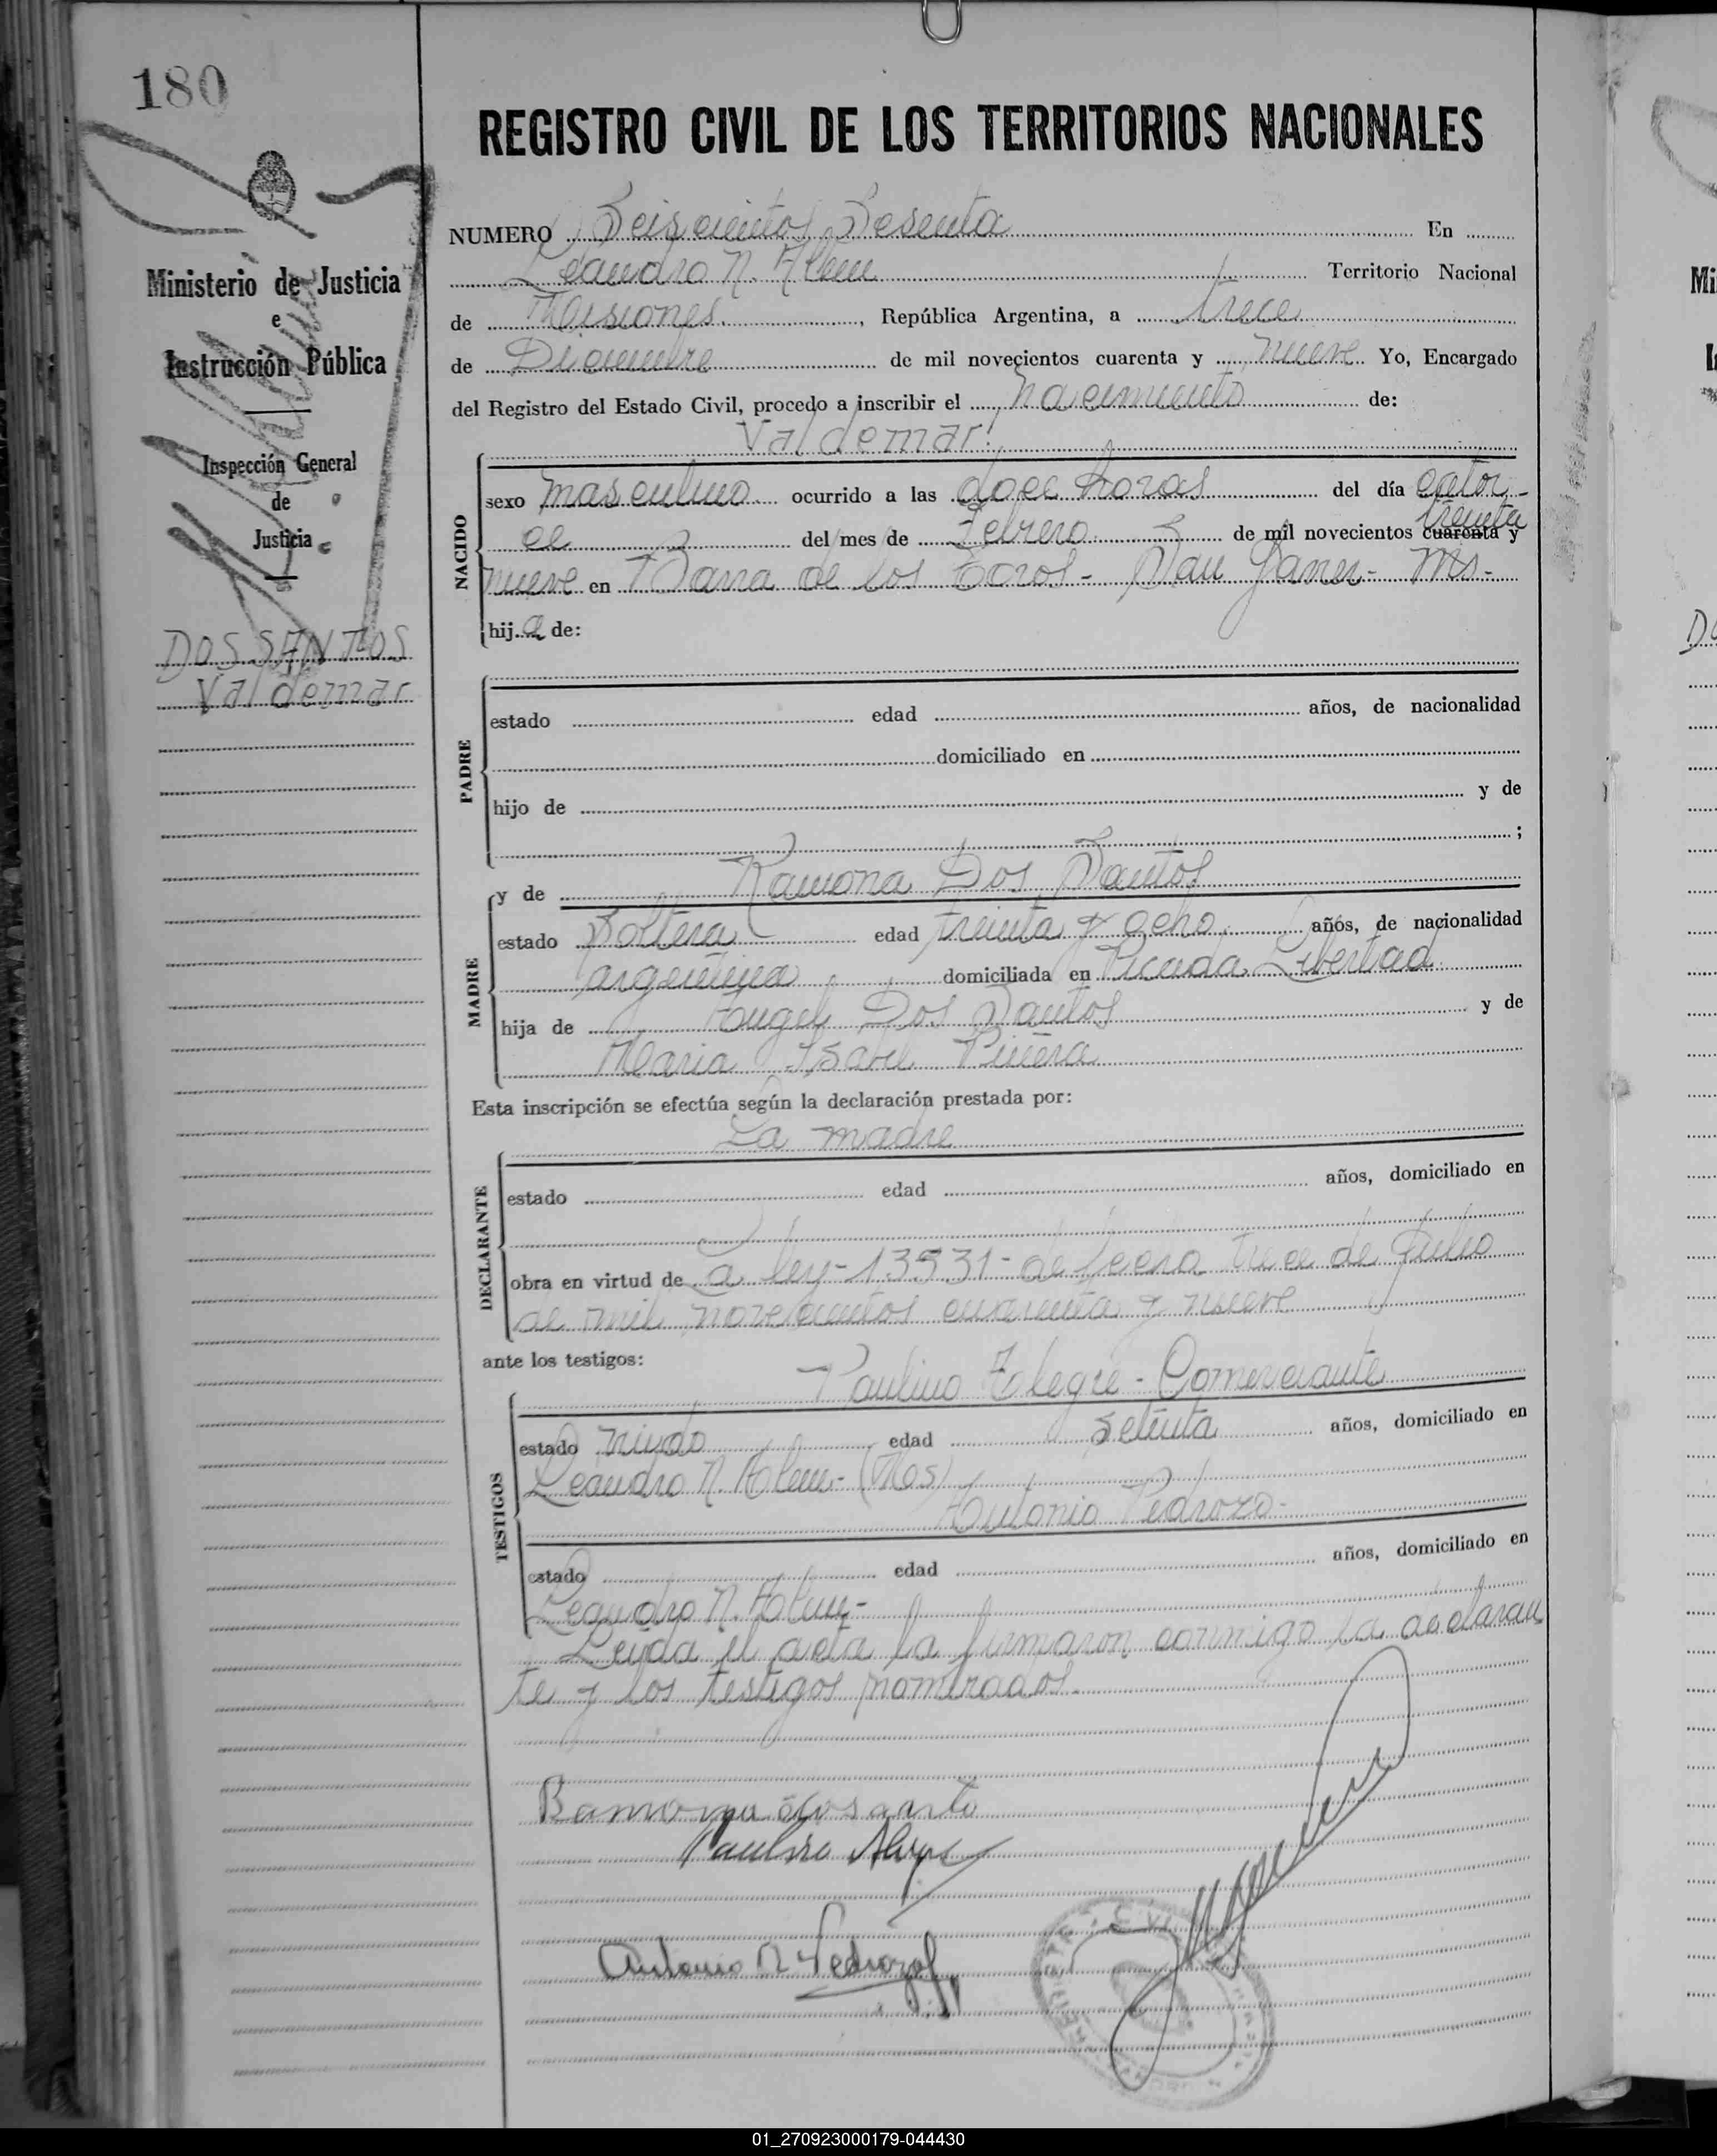 180
REGISTRO CIVIL DE LOS TERRITORIOS NACIONALES
Ministerio de Justicia
e
Instrucción Pública
Inspección General
de
Justicia
DOS SANTOS
Valdemar
NUMERO Seiscientos Sesenta En
Leandro N. Alem Territorio Nacional
de Misiones, República Argentina, a trece
de Diciembre de mil novecientos cuarenta y nueve Yo, Encargado
del Registro del Estado Civil, procedo a inscribir el nacimiento de:
Valdemar
NACIDO
sexo masculino ocurrido a las doce horas del día cator-
ce del mes de Febrero de mil novecientos cuarenta y treinta
nueve en Barra de los Toros - San Javier - Ms-
hij de:
PADRE
estado edad años, de nacionalidad
domiciliado en
hijo de y de
;
MADRE
y de Ramona Dos Santos
estado Soltera edad treinta y ocho años, de nacionalidad
argentina domiciliada en Picada Libertad
hija de Angel Dos Santos y de
Maria Isabel
Esta inscripción se efectúa según la declaración prestada por:
La madre
DECLARANTE
estado edad años, domiciliado en
obra en virtud de a ley - 13531 - de fecha trece de Julio
de mil novecientos cuarenta y nueve
ante los testigos:
TESTIGOS
Paulino Alegre - Comerciante
estado viudo edad setenta años, domiciliado en
Leandro N. Alem - (Mos)
Antonio Pedrozo -
estado edad años, domiciliado en
Leandro N. Alem -
Leida el acta la firmaron conmigo la declaran
te y los testigos nombrados.
Ramona dos santo
Paulino Alegre
Antonio R Pedrozo
01_270923000179-044430